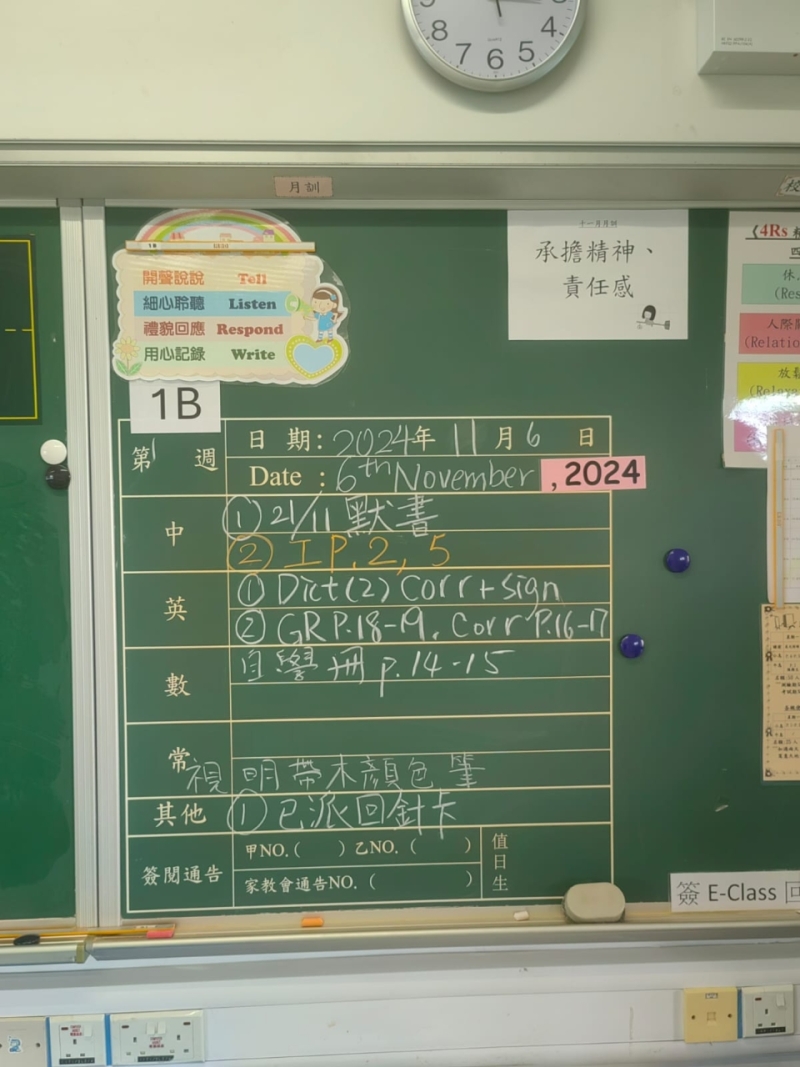 9 3
8 4
7 6 5
QUARTZ
月訓
校
1B
開聲說說 Tell
細心聆聽 Listen
禮貌回應 Respond
用心記錄 Write
1B
十一月月訓
承擔精神、
責任感
《4Rs
四
休
(Res
人際關
(Relatio
放鬆
(Relaxa
第1週
日期：2024年11月6日
Date : 6th November , 2024
中
① 21/11 默書
② I P.2, 5
英
① Dict(2) Corr + sign
② GR P.18-19. Corr P.16-17
數
自學冊 p.14-15
常
視 明帶木顏色筆
其他
① 已派回針卡
簽閱通告
甲NO.( ) 乙NO.( )
家教會通告NO.( )
值日生
簽 E-Class 回